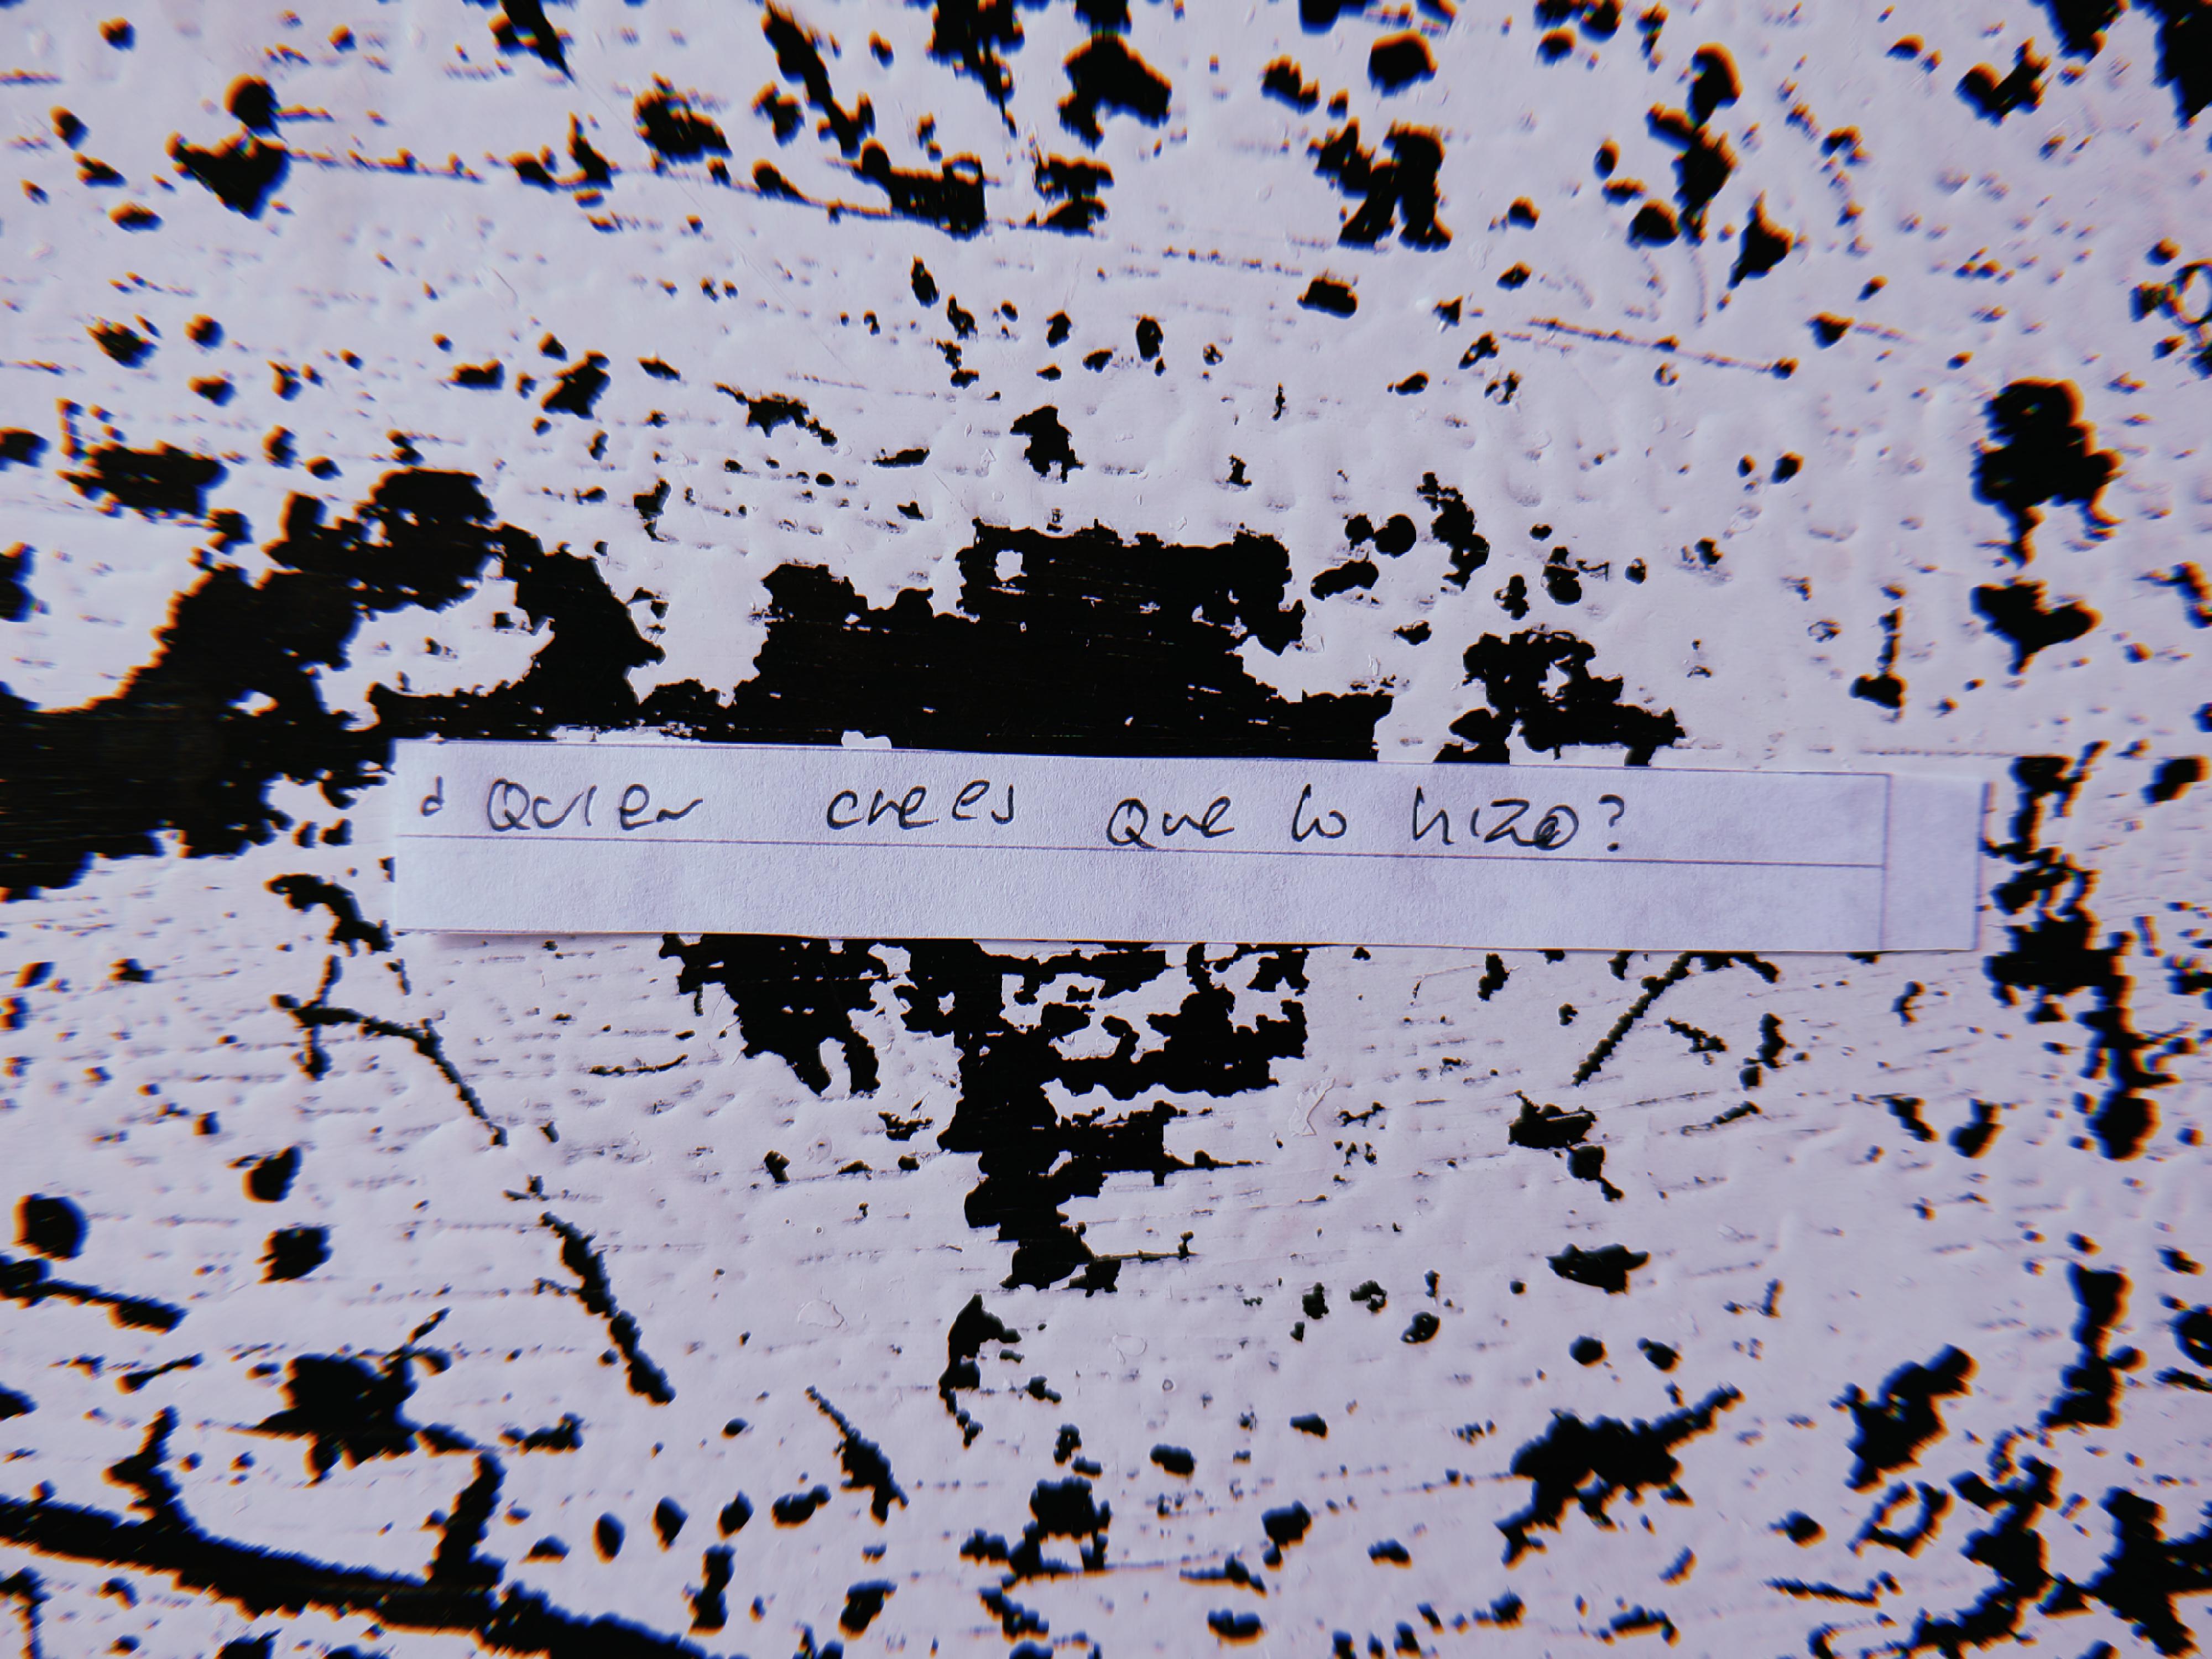 ¿Quien crees que lo hizo?